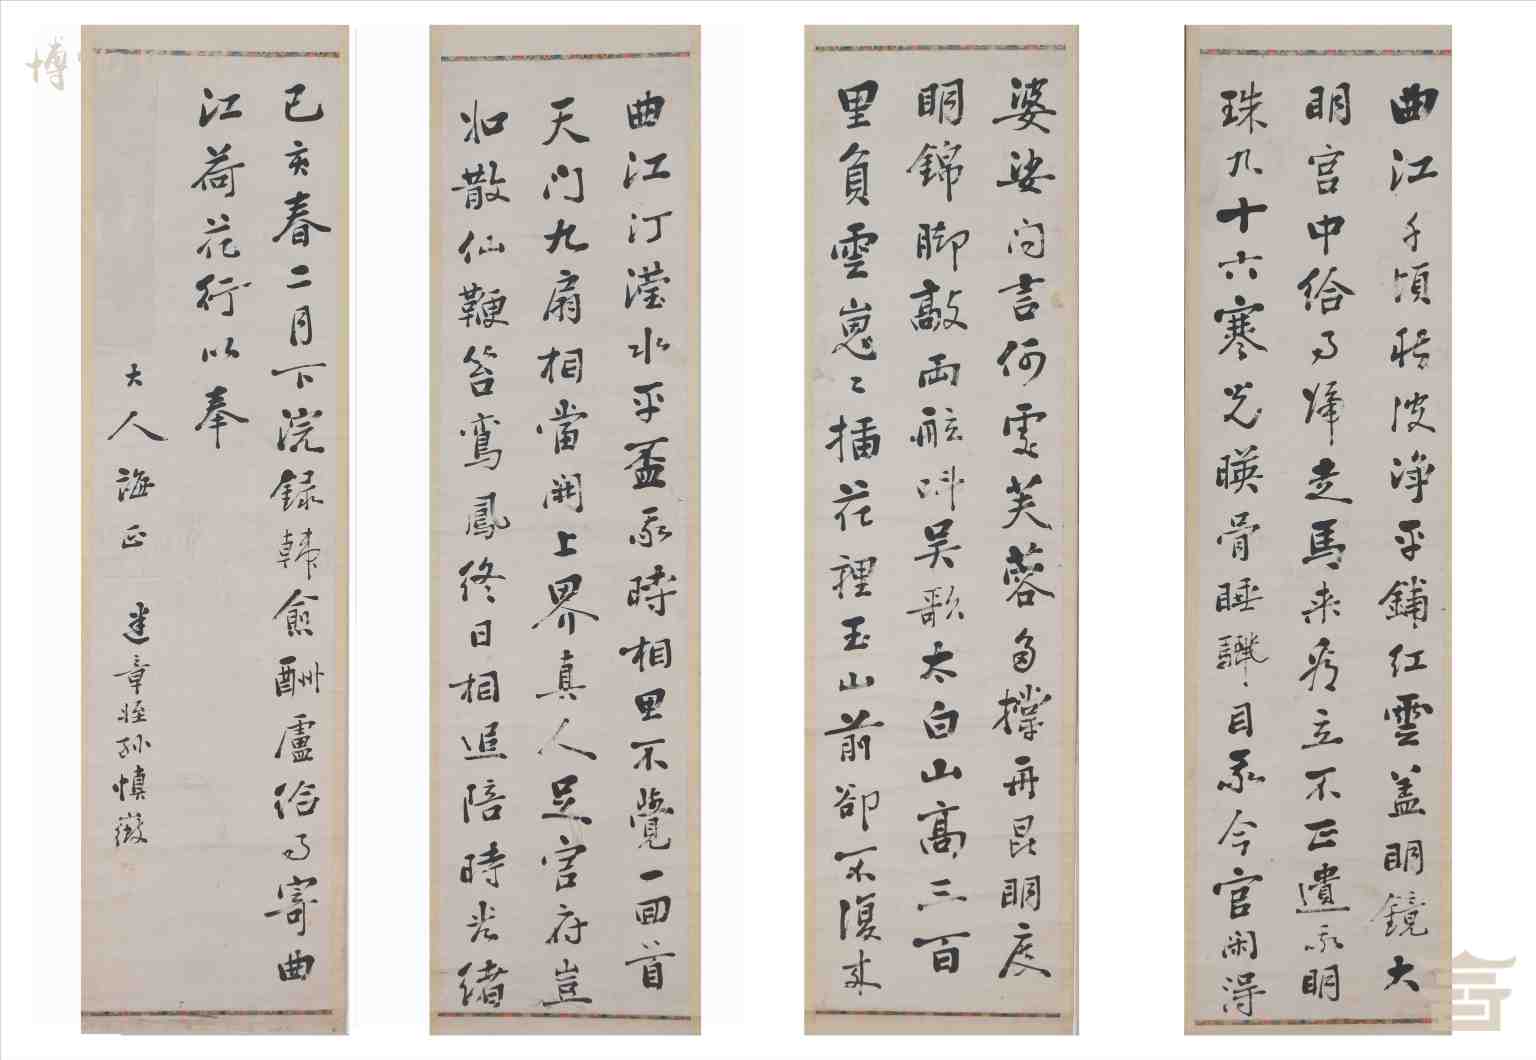 曲江千頃穐波淨平鋪紅雲蓋明鏡大
明宮中給事歸走馬来看立不正遺我明
珠九十六寒光暎骨睡驪目我今官閑得
婆娑问言何處芙蓉多撐舟昆明度
明錦脚敲兩舷叫吳歌太白山高三百
里負雲嵬〻插花裡玉山前卻不復来
曲江汀瀅水平盃我時相思不覺一囬首
天門九扇相當開上界真人足官府豈
如散仙鞭笞鸞鳳終日相追陪時光緒
己亥春二月下浣錄韓愈酬盧給事寄曲
江荷花行以奉
大人誨正
章姪孫慎徽
博